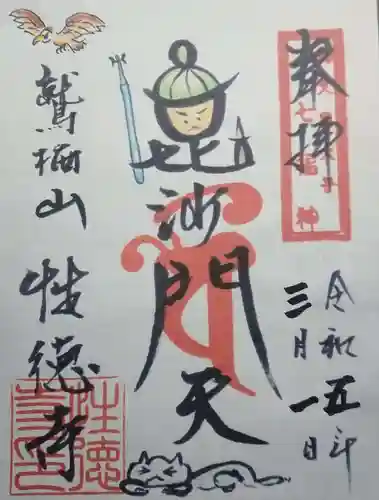 奉拝
七福神
令和五年
三月一日
毘沙門天
鷲栖山
性徳寺
性徳寺印